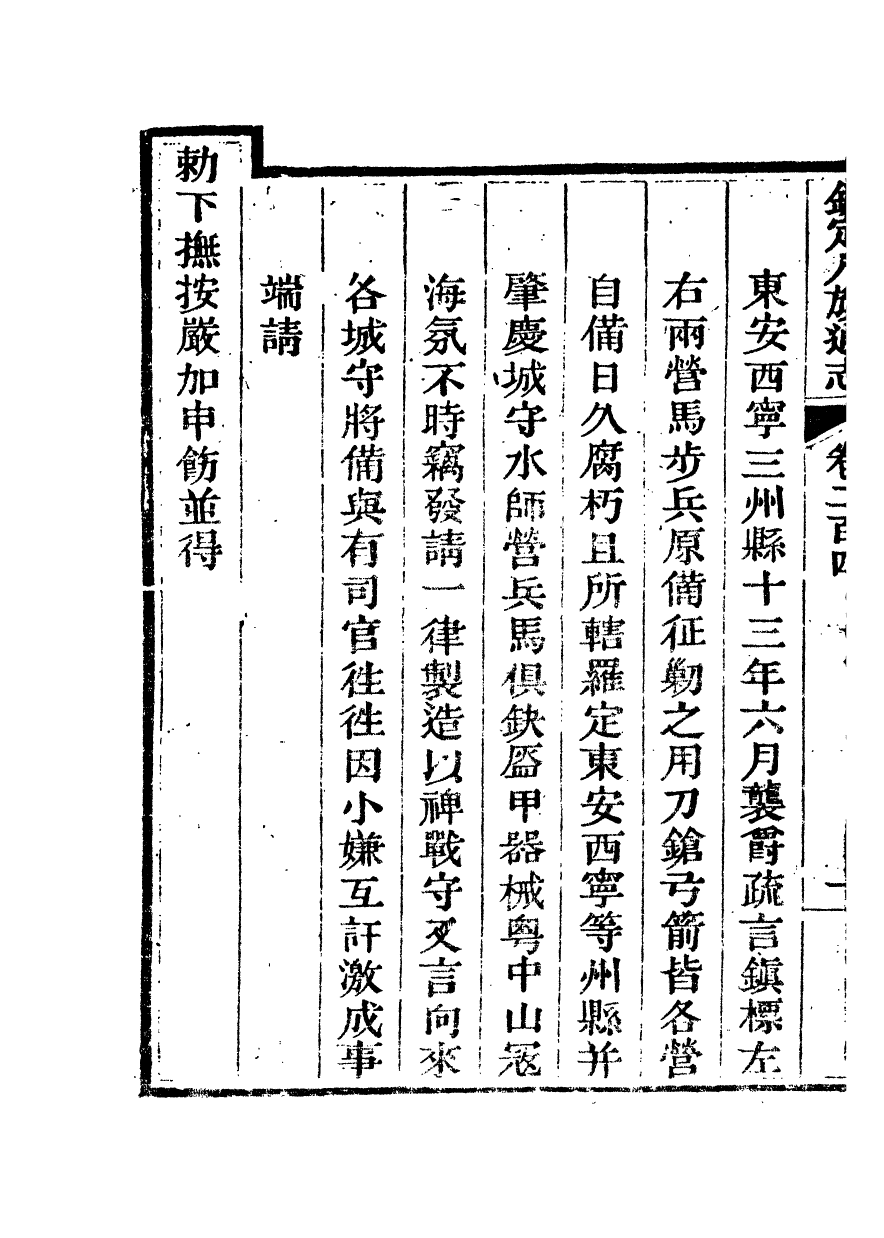 欽定八旗通志 卷二百四 一
東安西寧三州縣十三年六月襲爵疏言鎮標左
右兩營馬步兵原備征剿之用刀鎗弓箭皆各營
自備日久腐朽且所轄羅定東安西寧等州縣并
肇慶城守水師營兵馬俱缺盔甲器械粵中山冦
海氛不時竊發請一律製造以裨戰守又言向來
各城守將備與有司官徃徃因小嫌互訐激成事
端請
勅下撫按嚴加申飭並得